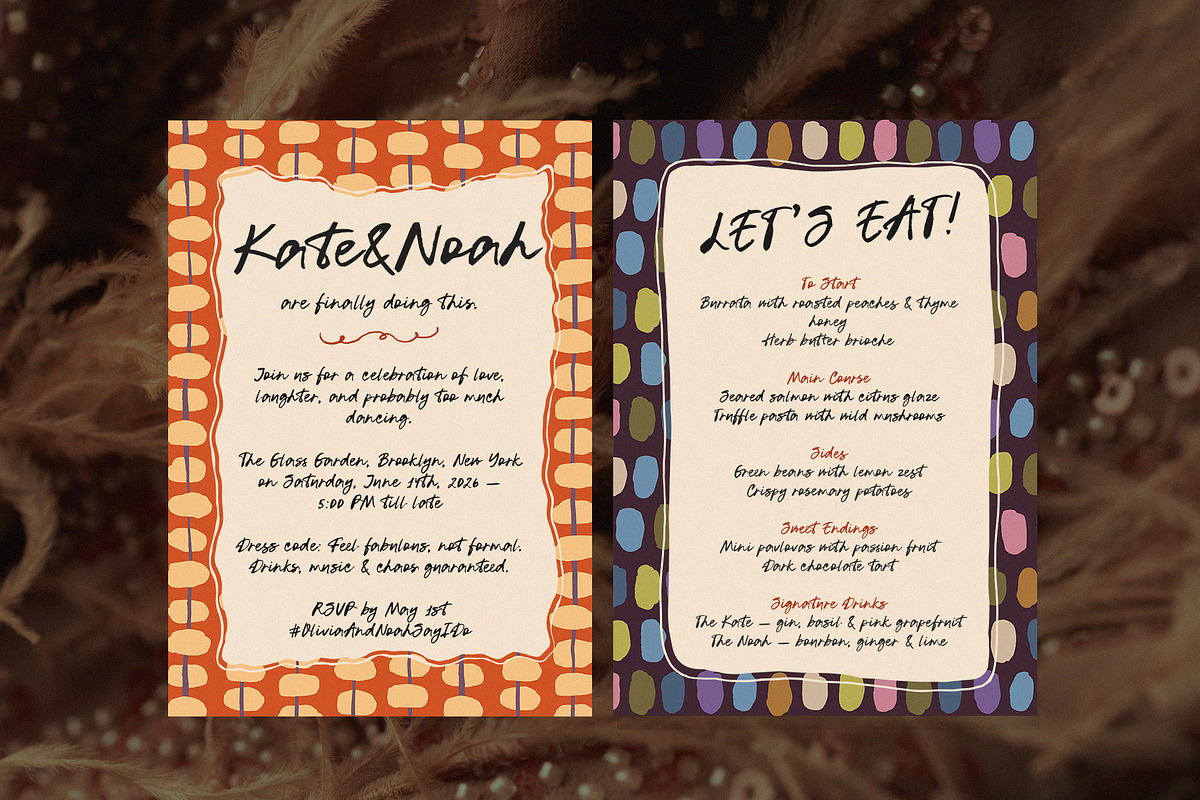 Kate&Noah
are finally doing this.
Join us for a celebration of love,
laughter, and probably too much
dancing.
The Glass Garden, Brooklyn, New York
on Saturday, June 14th, 2026 —
5:00 PM till late
Dress code: Feel fabulous, not formal.
Drinks, music & chaos guaranteed.
RSVP by May 1st
#OliviaAndNoahSayIDo
LET'S EAT!
To Start
Burrata with roasted peaches & thyme
honey
Herb butter brioche
Main Course
Seared salmon with citrus glaze
Truffle pasta with wild mushrooms
Sides
Green beans with lemon zest
Crispy rosemary potatoes
Sweet Endings
Mini pavlovas with passion fruit
Dark chocolate tart
Signature Drinks
The Kate — gin, basil & pink grapefruit
The Noah — bourbon, ginger & lime